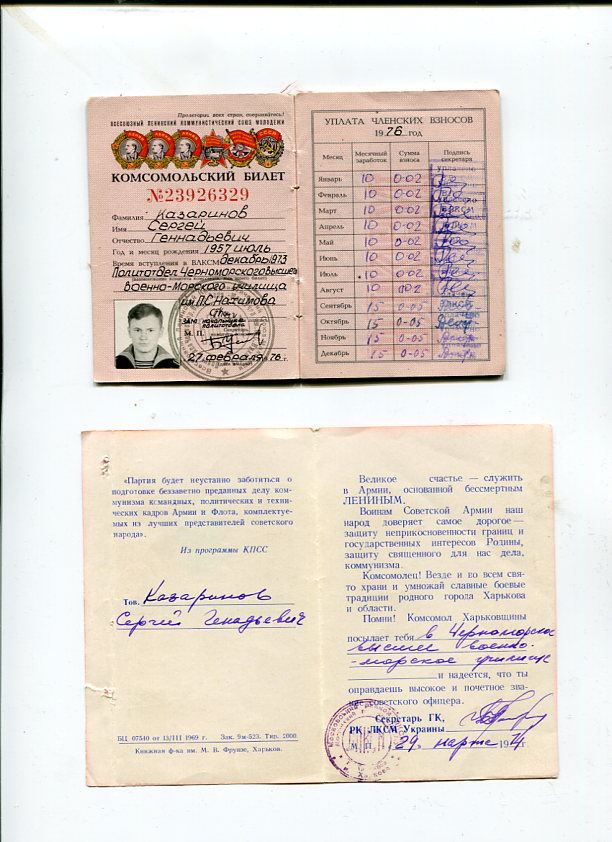 Пролетарии всех стран, соединяйтесь!
ВСЕСОЮЗНЫЙ ЛЕНИНСКИЙ КОММУНИСТИЧЕСКИЙ СОЮЗ МОЛОДЕЖИ
КОМСОМОЛЬСКИЙ БИЛЕТ
№23926329
Фамилия Казаринов
Имя Сергей
Отчество Геннадьевич
Год и месяц рождения 1957 июль
Время вступления в ВЛКСМ декабрь 1973
Политотдел Черноморского Высшего
Военно-Морского училища
им П.С. Нахимова
ЗАМ. начальника
политотдела
М. П.
27 февраля 76 г.
УПЛАТА ЧЛЕНСКИХ ВЗНОСОВ
1976 год
Месяц Месячный заработок Сумма взноса Подпись секретаря
Январь 10 0-02
Февраль 10 0-02
Март 10 0-02
Апрель 10 0-02
Май 10 0-02
Июнь 10 0-02
Июль 10 0-02
Август 10 002
Сентябрь 15 0-05
Октябрь 15 0-05
Ноябрь 15 0-05
Декабрь 15 0-05
«Партия будет неустанно заботиться о
подготовке беззаветно преданных делу ком-
мунизма командных, политических и техни-
ческих кадров Армии и Флота, комплектуе-
мых из лучших представителей советского
народа».
Из программы КПСС
Тов. Казаринов
Сергей Генадьевич
БЦ 07540 от 13/III 1969 г. Зак. 9м-523. Тир. 2000.
Книжная ф-ка им. М. В. Фрунзе, Харьков.
Великое счастье — служить
в Армии, основанной бессмертным
ЛЕНИНЫМ.
Воинам Советской Армии наш
народ доверяет самое дорогое —
защиту неприкосновенности границ и
государственных интересов Родины,
защиту священного для нас дела,
коммунизма.
Комсомолец! Везде и во всем свя-
то храни и умножай славные боевые
традиции родного города Харькова
и области.
Помни! Комсомол Харьковщины
посылает тебя в Черноморское
высшее военно-
-морское училище
и надеется, что ты
оправдаешь высокое и почетное зва-
ние советского офицера.
Секретарь ГК,
РК ЛКСМ Украины
М. П. 29 марта 1974